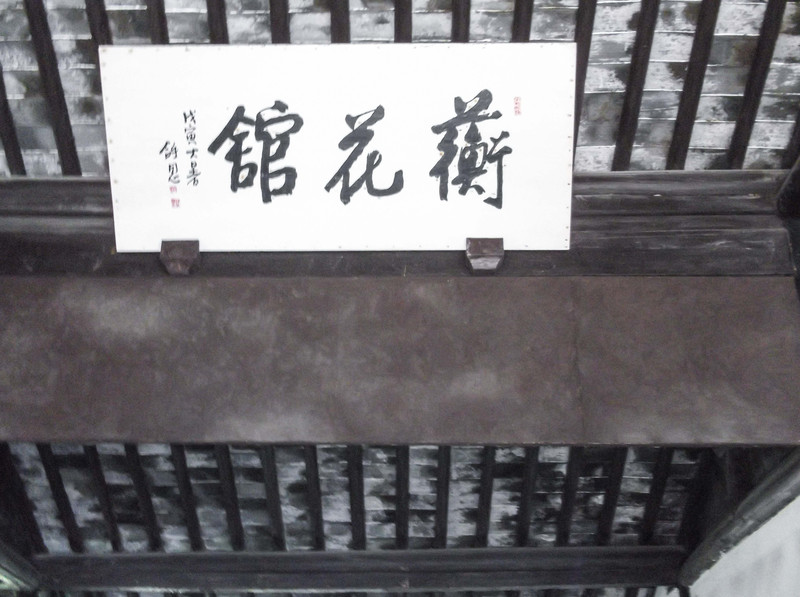 蘅花舘
戊寅大暑